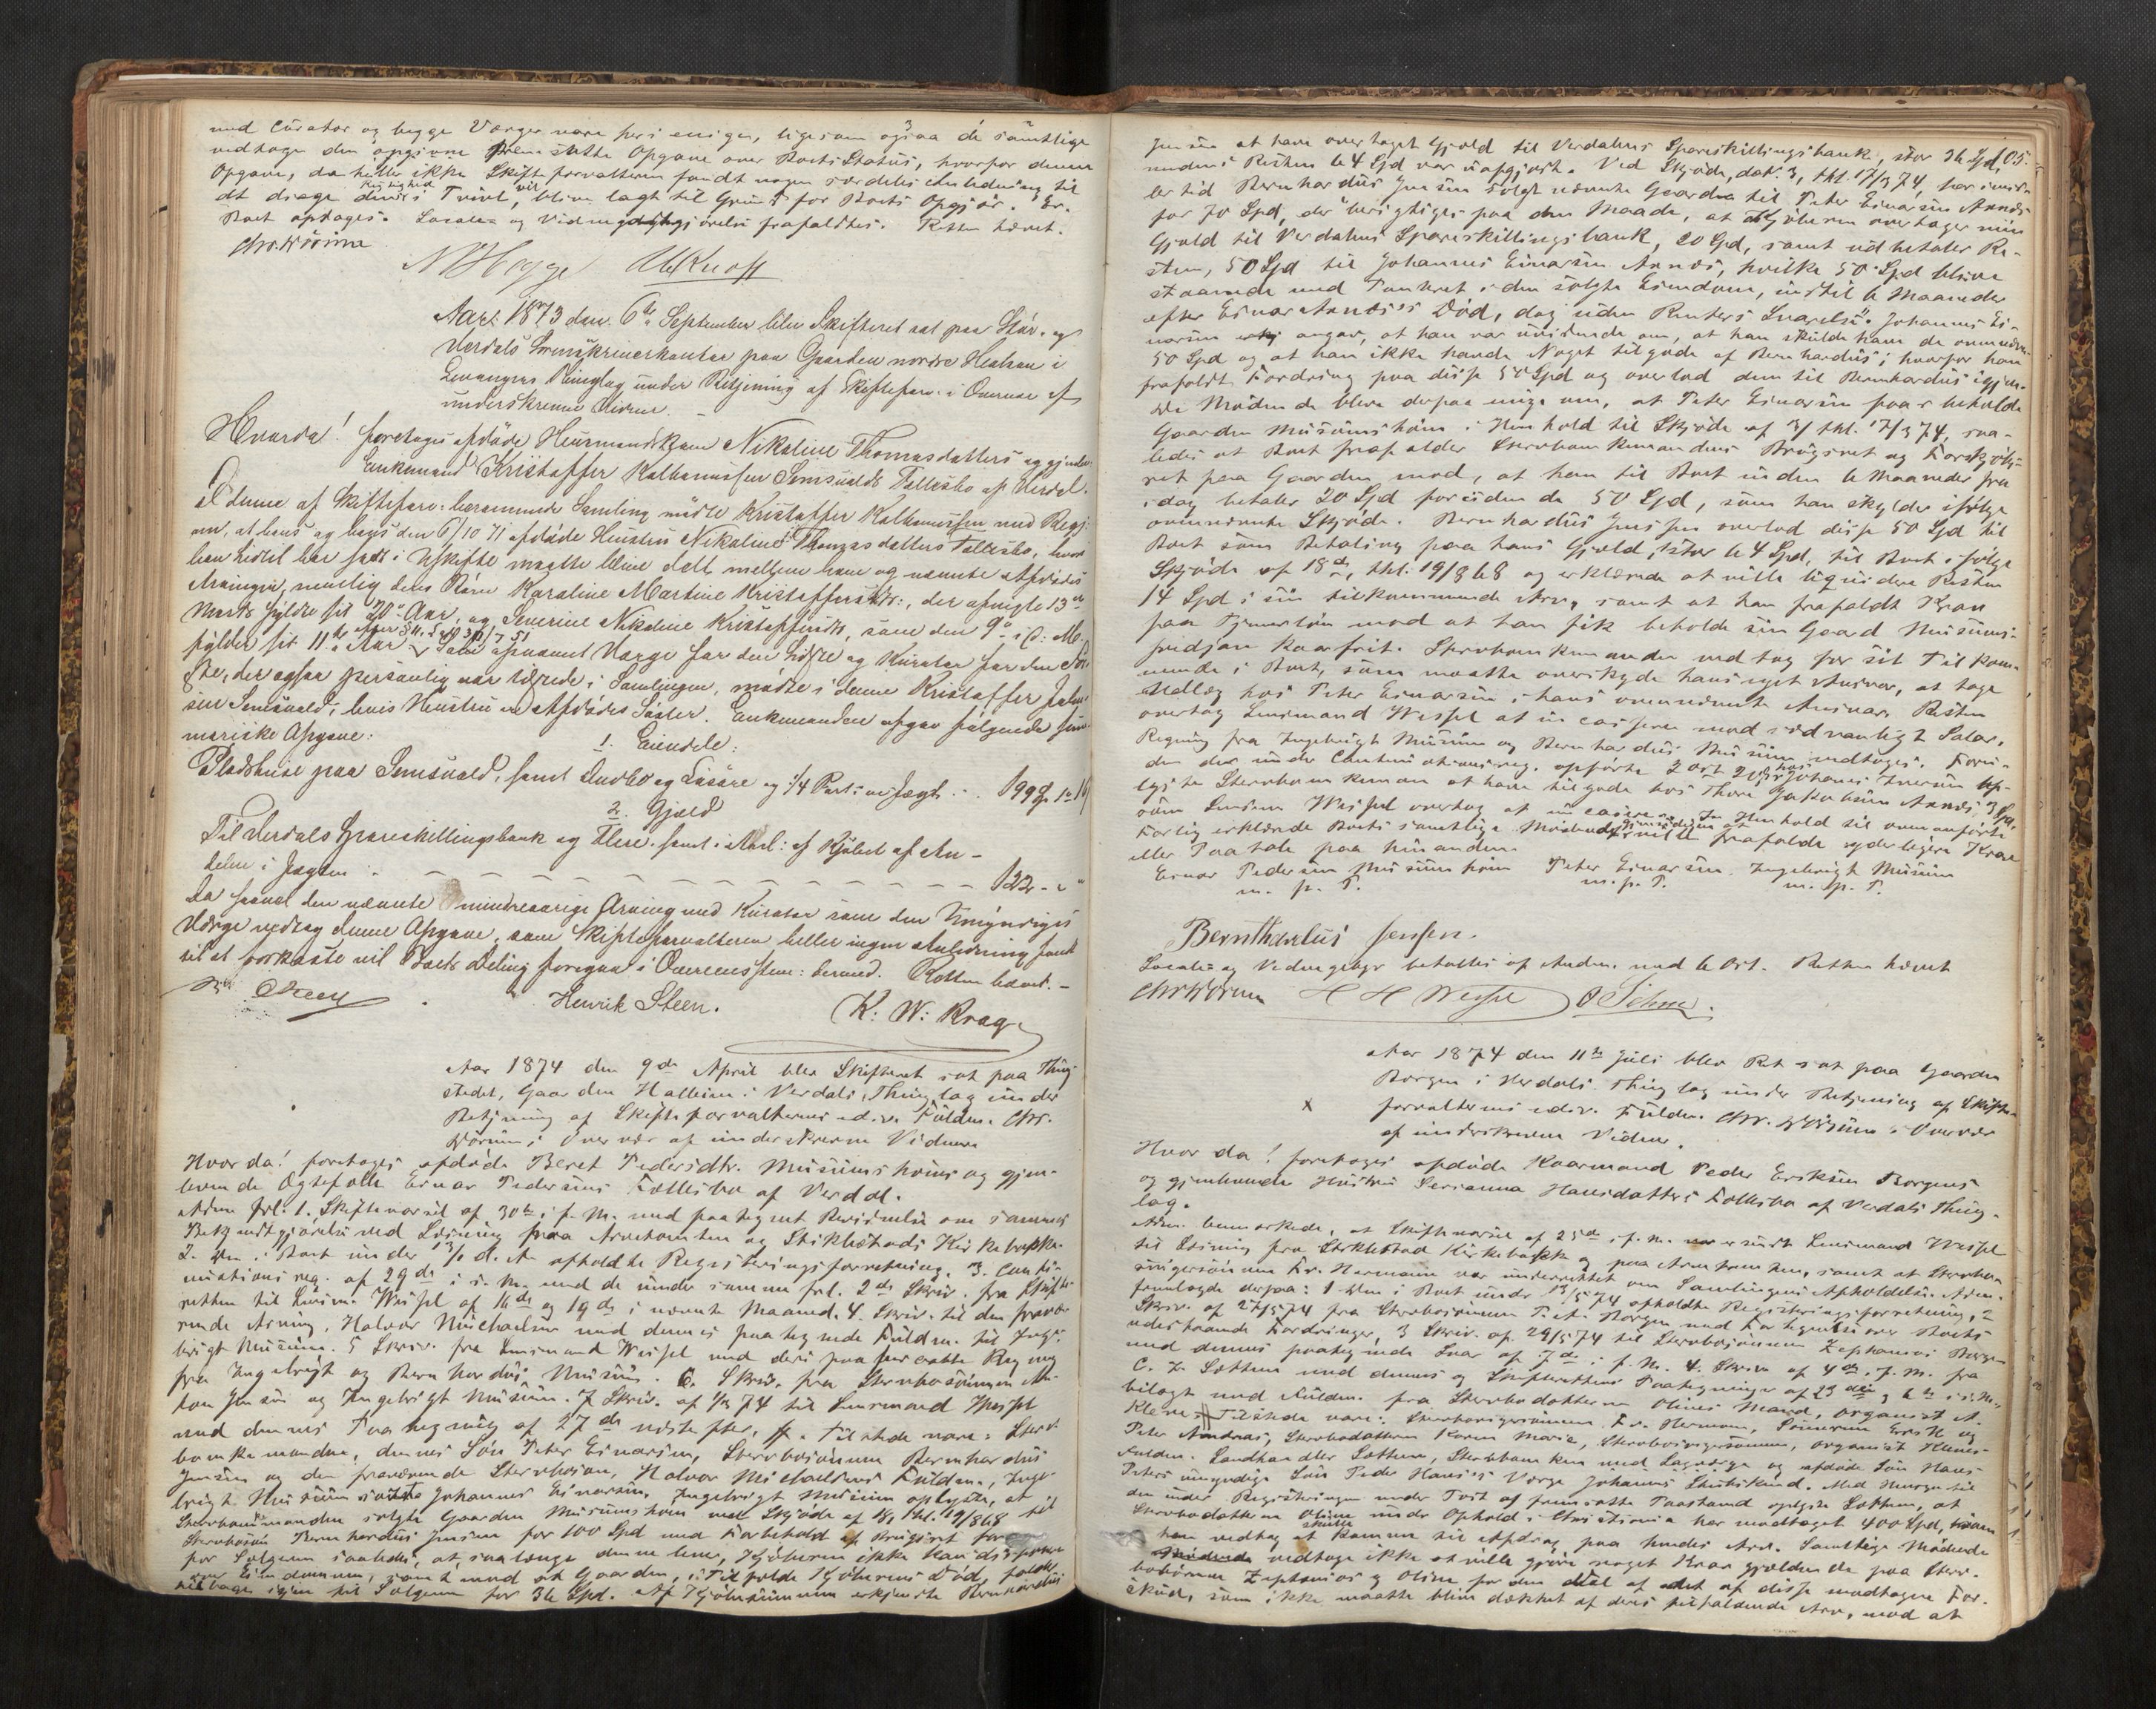 med Curator og begge Værger vare heri enige, ligesom ogsaa de samtlige
vedtoge den opgivne fremsatte Opgave over Boets Status, hvorfor denne
Opgave, da heller ikke Skifteforvalteren fandt nogen særdeles Anledning til
at drage dens Rigtighed i Tvivl, vil blive lagt til Grund for Boets Opgjør.
Boet optages. Locale- og Vidne frafaldtes. Retten hævet.
Chr. Wörum
N Hegge
Aar 1873 den 6te September blev Skifteret sat paa Stør- og
Værdals Sorenskriverkontor paa Gaarden nordre Heahan i
Levangers Thinglag under Betjening af Skifteforv. i Overvær af
underskrevne Vidner.
Hvorda! foretoges afdøde Huusmandskone Nikoline Thomasdatters og gjenlev.
Enkemand Kristoffer Kolbanussen Semsvalds Fællesbo af Værdal.
Til denne af Skifteforv. berammede Samling mødte Kristoffer Kolbanussen med Begj.
om, at hans og hans den 6/10 71 afdøde Hustru Nikoline Thomasdatters Fællesbo, hvori
han hidtil har sadt i Uskifte maatte blive delt mellem ham og nævnte Afdødes
Arvinger, nemlig dens Børn Karoline Martine Kristoffersdtr., der afvigte 13de
Marts fyldte sit 20de Aar, og Severine Nikoline Kristoffersdtr, som den 9de i d. M.
fylder sit 11te Aar. Som opnævnt Værge for den sidste og Kurator for den
første, der ogsaa personlig var tilstede i Samlingen, mødte i denne Kristoffer
sen Semsvald, hvis Hustru er Afdødes Søster. Enkemanden opgav følgende sum-
mariske Opgave:
1. Eiendele:
Pladshuse paa Semsvald, samt Indbo og Løsøre og 1/4 Part i en Jagt . . . 199
2. Gjæld
Til Værdals Spareskillingsbank og Flere, samt i Anl: af Kjøbet af An-
delen i Jagten . . . 122 - "
Da saavel den nævnte mindreaarige Arving med Kurator som den Umyndiges
Værge vedtog denne Opgave, som Skifteforvalteren heller ingen Anledning fandt
til at forkaste vil Boets Deling foregaa i Overensstem: dermed. Retten hævet. -
Steen
Henrik Steen.
K: W: Krag
Aar 1874 den 9de April blev Skifteret sat paa Thing-
stedet, Gaarden Hallem i Verdals Thinglag under
Betjening af Skifteforvalterens edsv. Fuldm. Chr.
Wörum i Overvær af underskrevne Vidner
Hvorda! foretoges afdøde Beret Pedersdtr. Musumshøins og gjen-
levende Ægtefælle Einar Pedersens Fællesbo af Verdal.
Adm. frl. 1. Skiftevarsel af 30te f. M. med paategnet Bevidnelse om sammes
Bekjendtgjørelse ved Læsning fra Arnetomten og Stiklestads Kirkebakke.
2. Den i Boet under d. A. afholdte Registreringsforretning. 3. Conti-
nuationsreg. af 29de i s. M. med de under samme frl. 2de Skriv. fra Skifte-
retten til Lensm. Wessel af 16de og 19de i nævnte Maaned. 4. Skriv. til den fravæ-
rende Arving, Halvor Michaelsen med dennes paategnede Fuldm. til Inge-
brigt Musum. 5 Skriv. fra Lensmand Wessel med deri paaberaabte Regning
fra Ingebrigt og Bernhardus Musum. 6. Skriv. fra Sterbosönnen An-
ton Jensen og Ingebrigt Musum. 7 Skriv. af 74 til Lensmand Wessel
med dennes Paategning af 27de næstefter. Tilstede vare: Sterv-
boenkemanden, dennes Søn Peter Einarsen, Stervbosönnen Bernhardus
Jensen og den fraværende Stervbosøn, Halvor Michaelsens Fuldm., Inge-
brigt Musum samt Johannes Einarsen. Ingebrigt Musum oplyste, at
Stervboenkemanden solgte Gaarden Musumshøin ved Skjøde af 18/ thl. 19/8 68 til
Stervbosön Bernhardus Jensen for 100 Spd med Forbehold af Brugsret
for Sælgeren saaledes, at, saalænge denne lever, Kjøberen ikke kan disponere
over Eiendommen, samt med at Gaarden, i Tilfælde Kjøberens Död, faldt
tilbage igjen til Sælgeren for 36 Spd. Af Kjøbesummen erkjendte Bernhardus
Jensen at have overtaget Gjæld til Verdalens Spareskillingsbank, stor 36 Spd,
medens Resten 64 Spd var uopgjort. Ved Skjøde, dat. 3, thl. 17/3 74, har imid-
lertid Bernhardus Jensen solgt nævnte Gaard til Peter Einarsen Aunæs
for 70 Spd, der berigtiges paa den Maade, at Kjøberen overtager min
Gjæld til Verdalens Spareskillingsbank, 20 Spd, samt udbetaler Re-
sten, 50 Spd til Johannes Einarsen Aunæs, hvilke 50 Spd blive
staaende med Panteret i den solgte Eiendom, indtil 6 Maaneder
efter Einar Aunæs's Död, dog uden Renters Svarelse. Johannes Ei-
narsen angav, at han var uvidende om, at han skulde have de ommeldte
50 Spd og at han ikke havde Noget tilgode af Bernhardus, hvorfor han
frafaldt Fordring paa disse 50 Spd og overlod dem til Bernhardus igjen.
De Mødende bleve derpaa enige om, at Peter Einarsen faar beholde
Gaarden Musumshøin i Henhold til Skjøde af 3/ thl. 17/3 74, saa-
ledes at Boet frafalder Stervboenkemandens Brugsret og Forkjøbs-
ret paa Gaarden mod, at han til Boet inden 6 Maaneder fra
idag betaler 20 Spd foruden de 50 Spd, som han skylder ifølge
ovennævnte Skjøde. Bernhardus Jensen overlod disse 50 Spd til
Boet som Betaling paa hans Gjæld, stor 64 Spd, til Boet ifølge
Skjøde af 18de, thl. 19/8 68 og erklærede at ville liquidere Resten
14 Spd i sin tilkommende Arv, samt at han frafaldt Krav
paa Tjenerløn mod at han fik beholde sin Gaard Musums-
vedjan kaarfrit. Stervboenkemanden vedtog for sit Tilkom-
mende i Boet, som maatte overskyde hans eget Ansvar, at tage
Udlæg hos Peter Einarsen i hans ovennævnte Ansvar. Resten
overtog Lensmand Wessel at incassere mod sædvanligt Salar.
Regning fra Ingebrigt Musum og Bernhardus Musum vedtoges. Foru-
den den under Continuationsreg. opførte 2 Ort hos Johannes Iversen op-
lyste Stervboenkeman at have tilgode hos Thore Jakobsen Aunæs 3 Spd,
som Lensm. Wessel overtog at incassere. I Henhold til ovenanførte
Forlig erklærede Boets samtlige Mødende gjensidigen at ville frafalde yderligere Krav
eller Paatale paa hinanden.
Einar Pedersen Musumshøin Peter Einarsen Ingebrigt Musum
m. p. P. m. p. P. m. p. P.
Bernthardus Jensen.
Locale- og Vidnegebyr betaltes af Adm. med 6 Ort. Retten hævet
Chr Wörum H H Wessel O Sehm.
Aar 1874 den 11te Juli blev Ret sat paa Gaarden
Borgen i Verdals Thinglag under Betjening af Skifte-
x forvalterens edsv. Fuldm. Chr. Wörum i Overvær
af underskrevne Vidner.
Hvorda! foretoges afdøde Kaarmand Peder Eriksen Borgens
og gjenlevende Hustru Serianna Hansdatters Fællesbo af Verdals Thing-
lag.
Adm. bemærkede, at Skiftevarsel af 25de f. M. var sendt Lensmand Wessel
til Læsning fra Stiklestad Kirkebakke og paa Arnetomten, samt at Stervbo-
svigersönnen Fr. Hermann var underrettet om Samlingens Afholdelse. Adm.
fremlagde derpaa: 1 Den i Boet under 13/5 74 afholdte Registreringsforretning, 2
Skriv. af 27/5 74 fra Stervbosönnen P. A. Borgen med Fortegnelse over Boets
udestaaende Fordringer, 3 Skriv. af 29/5 74 til Stervbosönnen Zephanias Borgen
med dennes paategnede Svar af 7de i f. M. 4. Skriv. af 4de f. M. fra
C. Z. Sættem med dennes og Skifterettens Paategninger af 23de og 6te i s. M.,
bilagt med Fuldm. fra Stervbodatteren Olines Mand, Organist A.
Klevs. Tilstede vare: Stervbosvigersönnen Fr. Hermann, Sönnerne Erik og
Peter Andreas, Stervbodatteren Karen Marie, Stervbosvigersönnen, Organist Klevs
Fuldm. Landhandler Sættem, Stervboenken med Lagværge og afdøde Søn Hans
Peters umyndige Søn Peder Hans's Værge Johannes Slutskind. Med Hensyn til
den under Registreringen under Post af fremsatte Paastand oplyste Sættem, at
Stervbodatteren Oline under Ophold i Christiania har modtaget 400 Spd, som
han vedtog at skulle komme til Afdrag paa hendes Arv. Samtlige Mødende
vedtoge ikke at ville gjøre noget Krav gjældende paa Sterv-
bobörnene Zephanias og Oline for den Del af det af disse modtagne For-
skud, som ikke maatte blive dækket af deres tilfaldende Arv, mod at